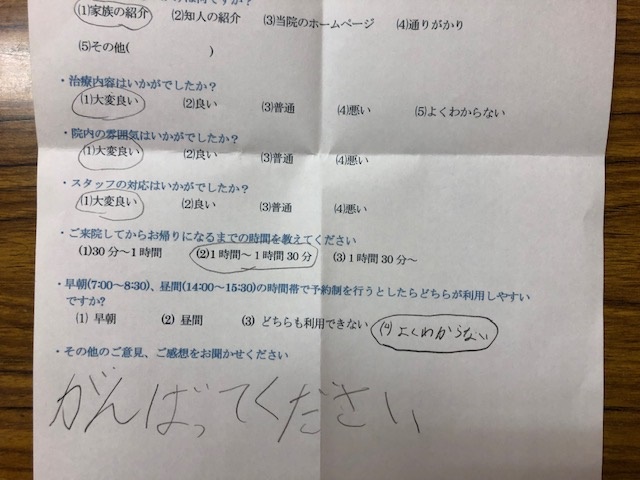 (1)家族の紹介 (2)知人の紹介 (3)当院のホームページ (4)通りがかり
(5)その他( )
・治療内容はいかがでしたか？
(1)大変良い (2)良い (3)普通 (4)悪い (5)よくわからない
・院内の雰囲気はいかがでしたか？
(1)大変良い (2)良い (3)普通 (4)悪い
・スタッフの対応はいかがでしたか？
(1)大変良い (2)良い (3)普通 (4)悪い
・ご来院してからお帰りになるまでの時間を教えてください
(1)30分～1時間 (2)1時間～1時間30分 (3)1時間30分～
・早朝(7:00～8:30)、昼間(14:00～15:30)の時間帯で予約制を行うとしたらどちらが利用しやすい
ですか?
(1) 早朝 (2) 昼間 (3) どちらも利用できない (4)よくわからない
・その他のご意見、ご感想をお聞かせください
がんばってください